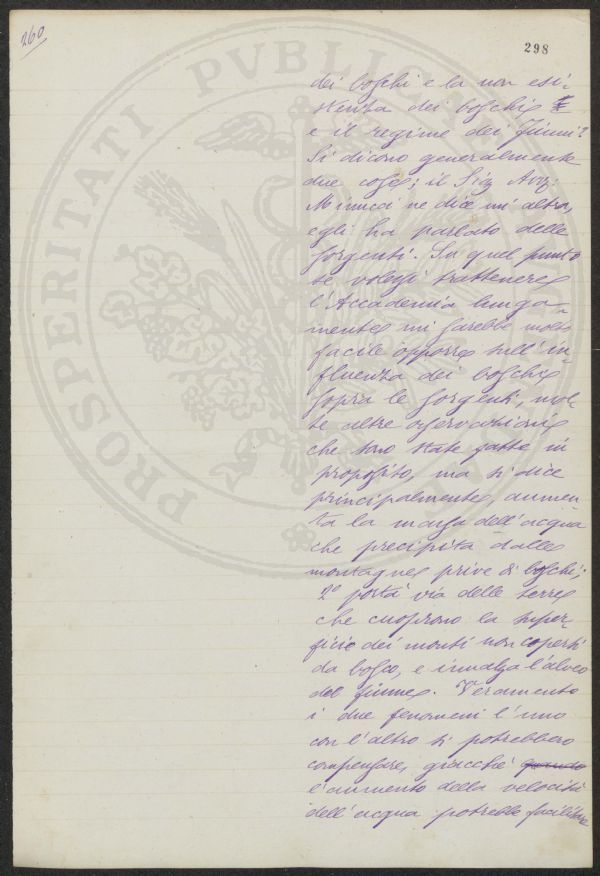 260
298
PROSPERITATI PVBLICAE
dei boschi e la non esi-
stenza dei boschi
e il regime dei fiumi?
Si dicono generalmente
due cose; il Sig Avv:
Minucci ne dice un'altra,
egli ha parlato delle
sorgenti. Su quel punto
se volessi trattenere
l'Accademia lunga-
mente mi sarebbe molto
facile opporre sull'in-
fluenza dei boschi
sopra le sorgenti, mol-
te altre osservazioni
che sono state fatte in
proposito, ma si dice
principalmente, aumen
ta la massa dell'acqua
che precipita dalle
montagne prive di boschi;
2º porta via delle terre
che cuoprono la super-
ficie dei monti non coperti
da bosco, e innalza l'alveo
del fiume. Veramente
i due fenomeni l'uno
con l'altro si potrebbero
compensare, giacchè quando
l'aumento della velocità
dell'acqua potrebbe facilitare